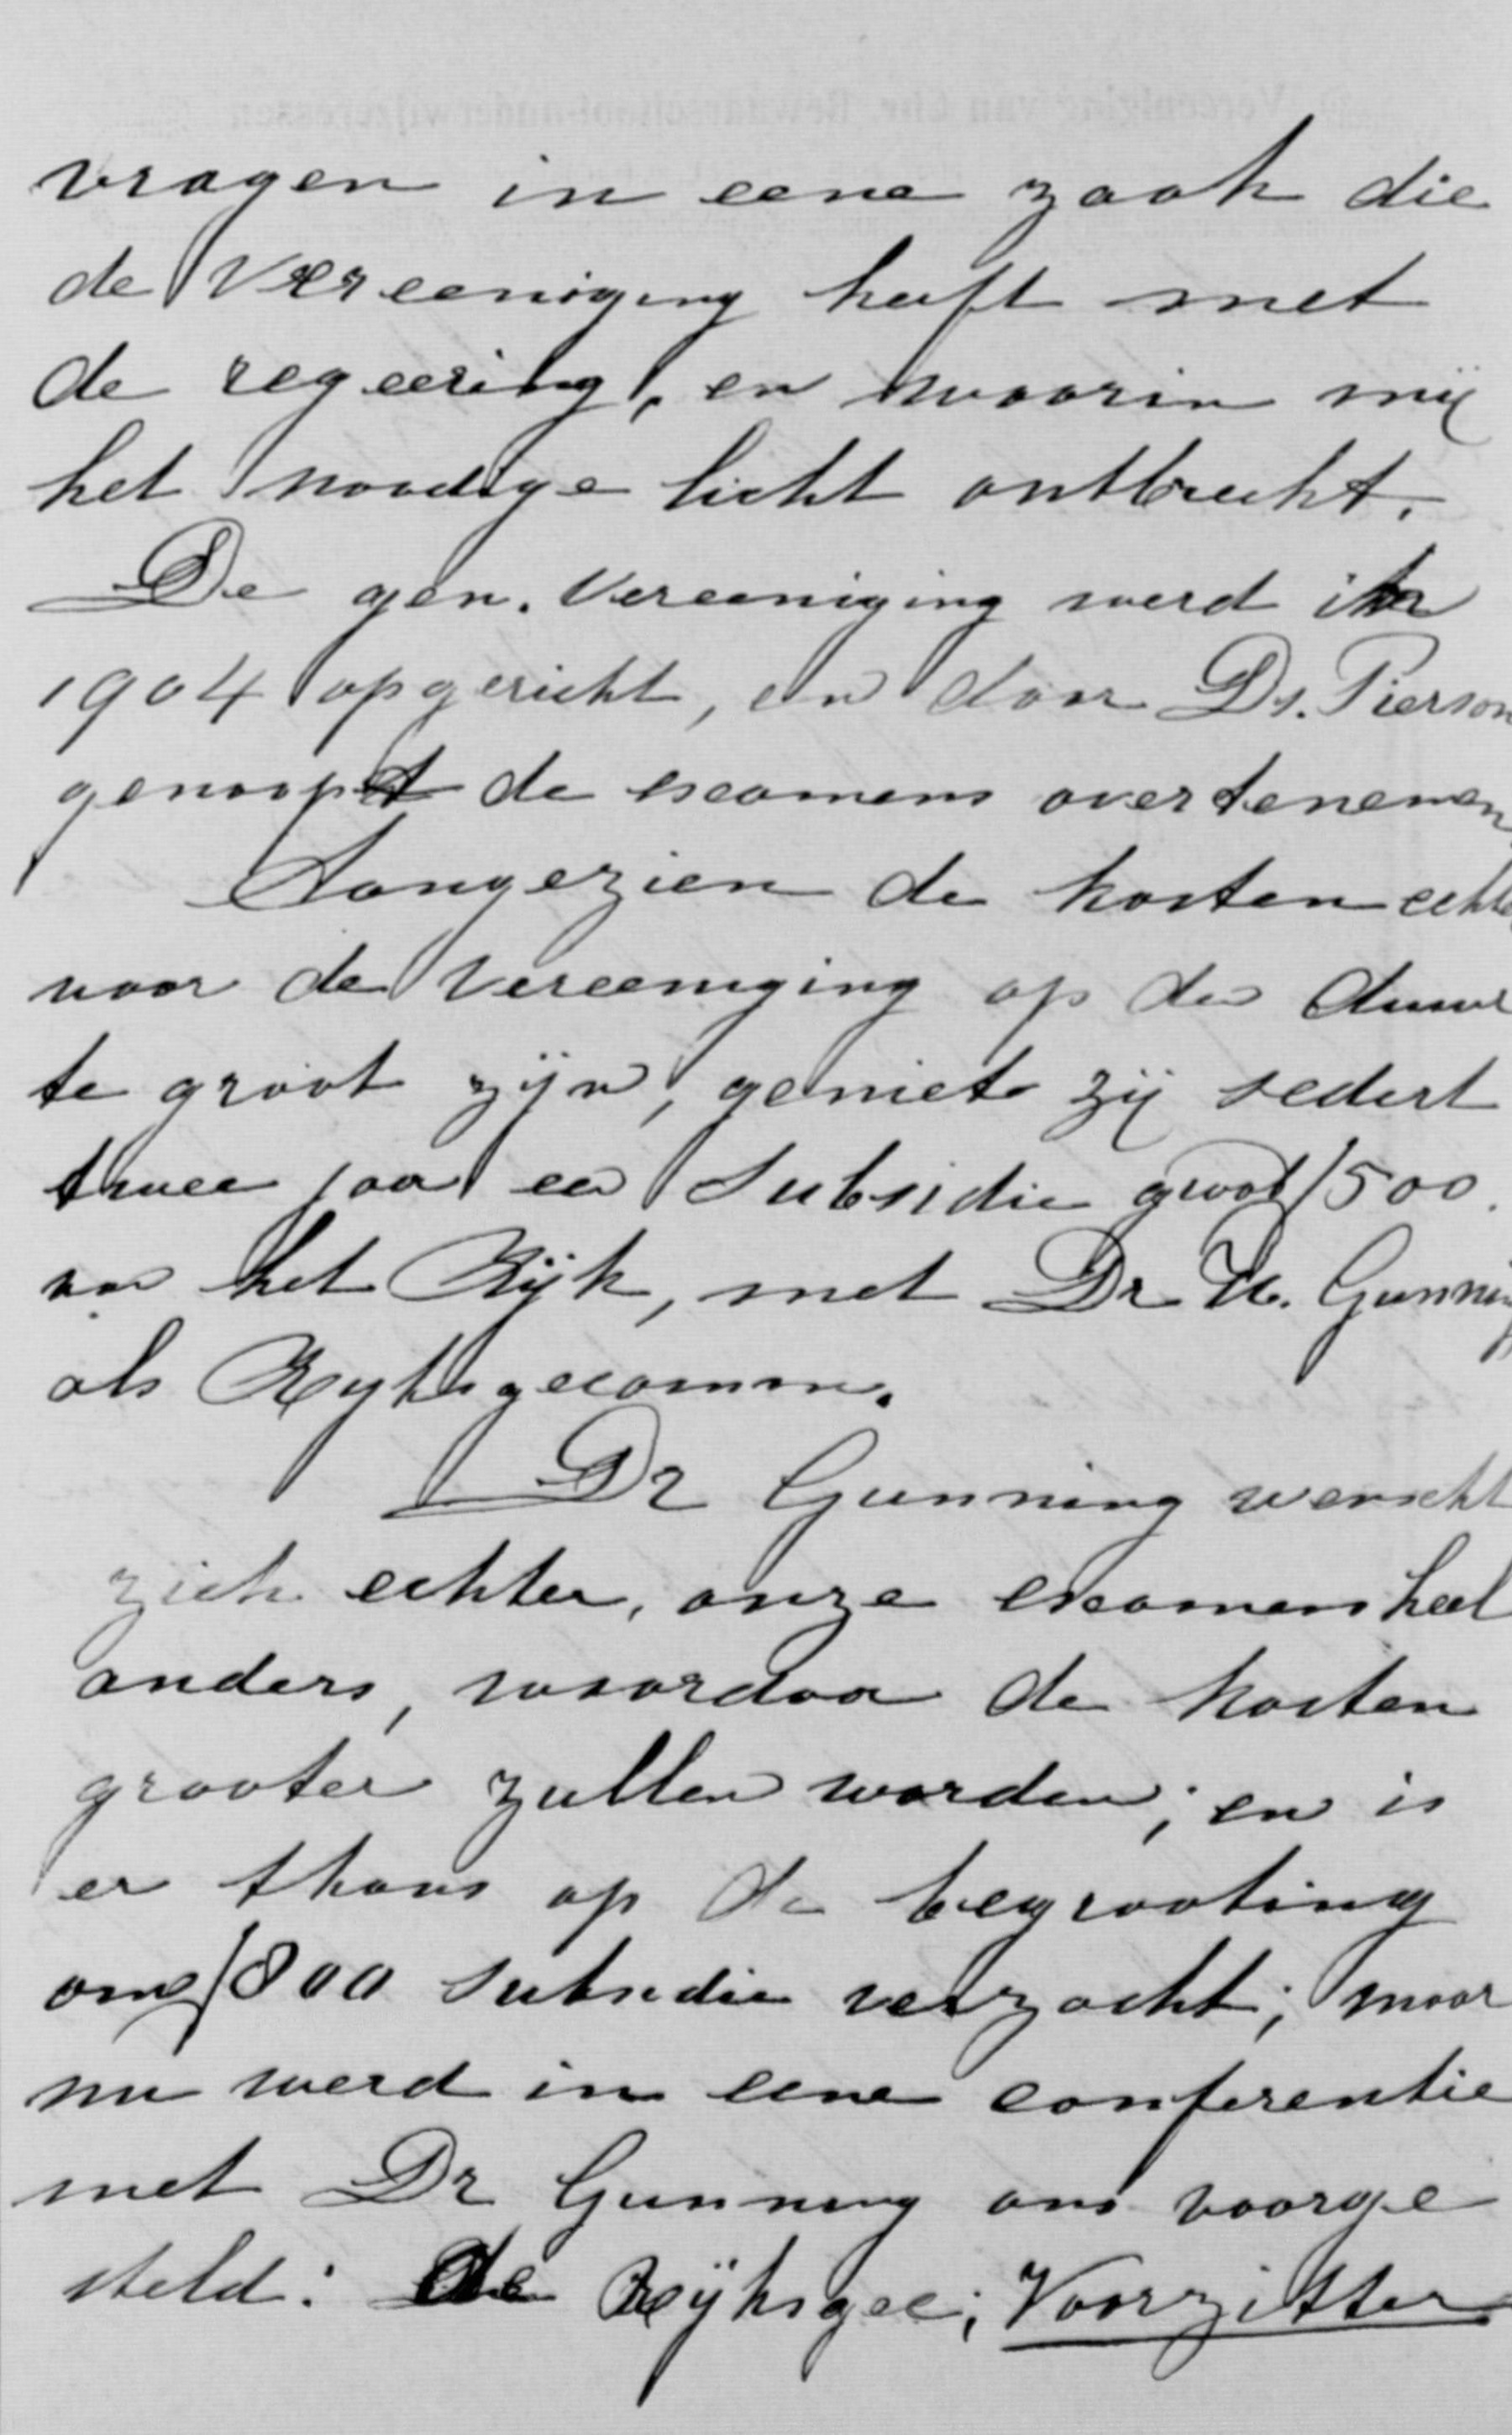 vragen in eene zaak die
de Vereeniging heeft met
de regeering, en waarin mij
het noodige licht ontbreekt.
De gen. Vereeniging werd in
1904 opgericht, en door Ds. Pierson
genoopt de examens overtenemen
Aangezien de kosten echter
voor de Vereeniging op den duur
te groot zijn, geniet zij sedert
twee jaar een Subsidie groot f 500.
van het Rijk, met Dr H. Gunning
als Rijksgecomm.
Dr Gunning wenscht
zich echter, onze examens heel
anders, waardoor de kosten
grooter zullen worden; en is
er thans op de begrooting
om f 800 subsidie verzocht; maar
nu werd in eene conferentie
met Dr Gunning ons voorge
steld: de Rijksgec; Voorzitter